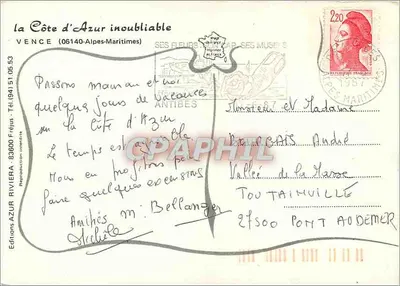 la Côte d'Azur inoubliable
VENCE (06140-Alpes-Maritimes)
SES FLEURS SES MUSEES
ANTIBES
2,20
Passons maman et moi
quelques jours de vacances
sur la Côte d'Azur
Le temps est agréable
Nous en profitons pour
faire quelques excursions
Amitiés M. Bellanger
Michèle
Monsieur et Madame
André
Vallée de la
TOUTAINVILLE
27500 PONT AUDEMER
Editions AZUR RIVIERA, 83600 Fréjus - Tél (94) 51 05 53
Reproduction interdite
CPAPHIL